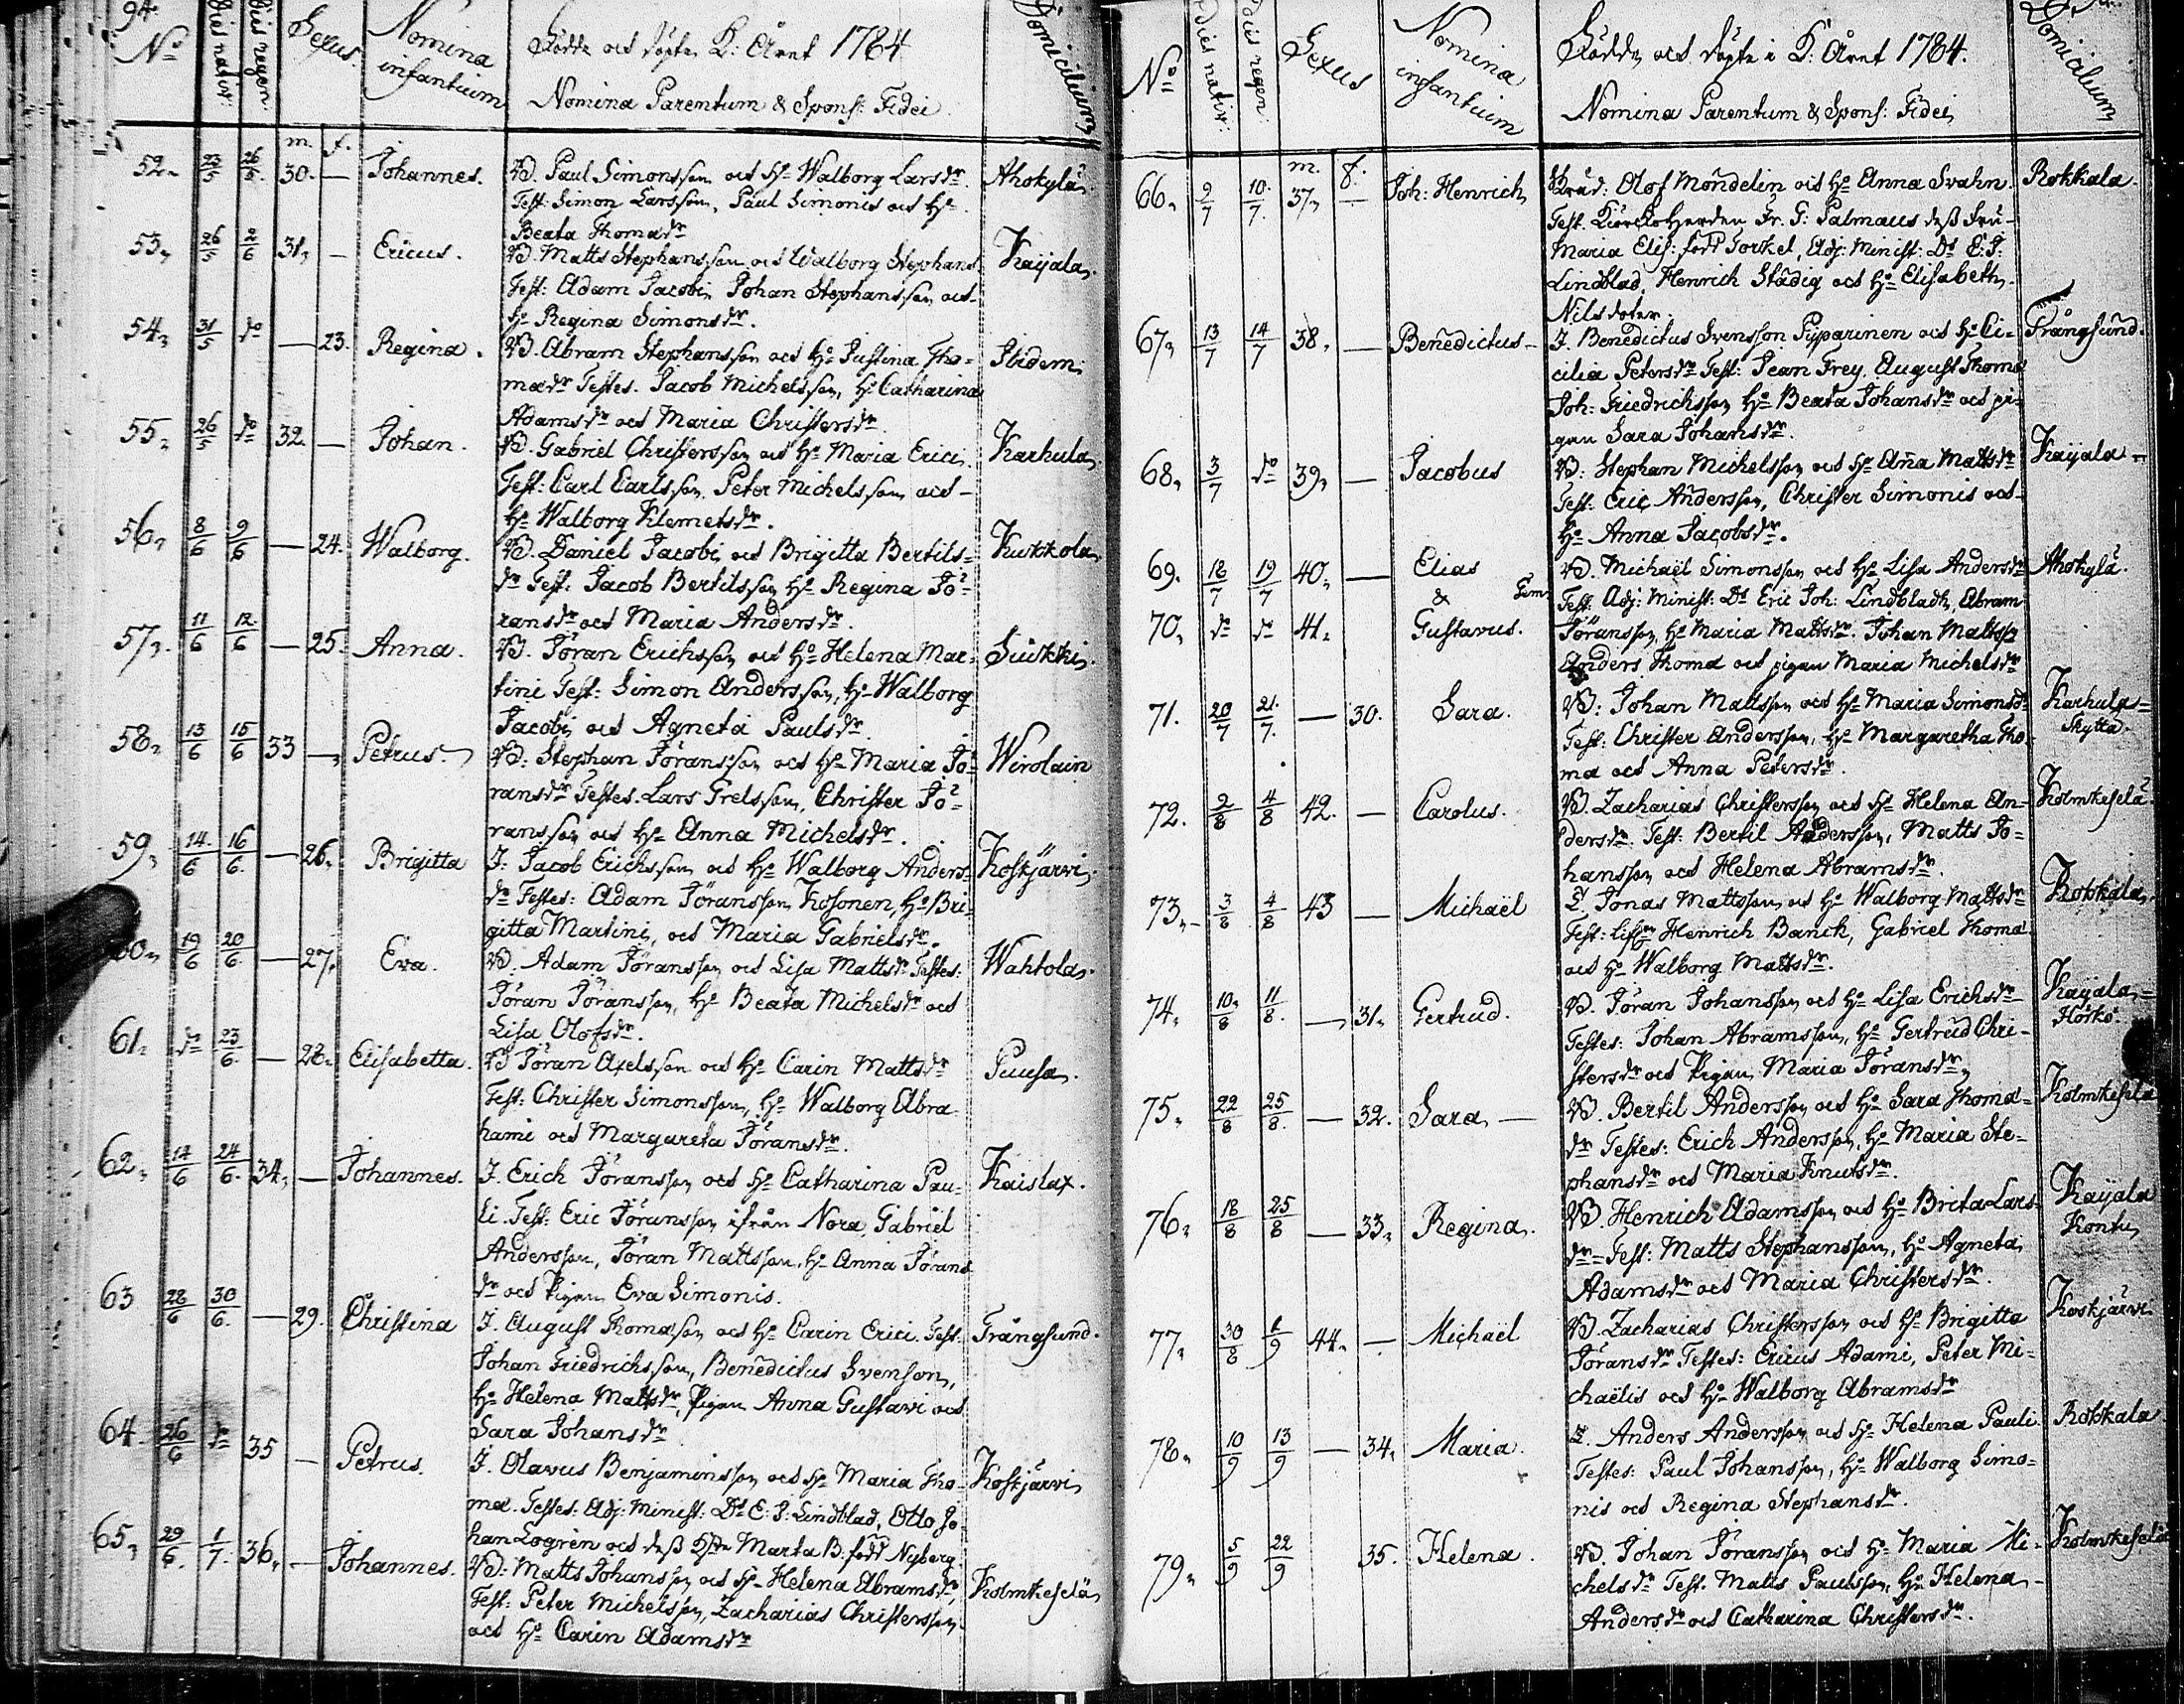 94.
No Dies nativ: Dies regen: Sexus. Nomina infantium Födde och döpte K: Året 1784 Domicilium
Nomina Parentum & Spons: Fidei
m. f.
52. 23/5 26/5. 30. — Johannes. B. Paul Simonsson och H: Walborg Larsdr Ahokylä.
Test: Simon Larsson, Paul Simonis och H:
Beata Thomædr
53. 26/5 2/6 31. — Ericus. B. Matts Stephansson och Walborg Stephans Kaijala.
Test: Adam Jacobi, Johan Stephansson och
H: Regina Simonsdr.
54. 31/5 do — 23. Regina. B. Abram Stephansson och H: Justina Tho- Ibidem.
mædr Testes. Jacob Michelsson, H: Catharina
Adamsdr och Maria Christersdr.
55. 26/5 do 32. — Johan. B. Gabriel Christersson och H: Maria Erici. Karhula
Test: Carl Carlsson, Peter Michelsson och
H: Walborg Klemetsdr.
56. 8/6 9/6 — 24. Walborg. B. Daniel Jacobi och Brigitta Bertils- Kukkola
dr Test: Jacob Bertilsson, H: Regina Jö-
ransdr och Maria Andersdr.
57. 11/6 12/6 — 25. Anna. B. Jöran Erichsson och H: Helena Mar- Siukki
tini Test: Simon Andersson, H: Walborg
Jacobi och Agneta Paulsdr.
58. 13/6 15/6 33 — Petrus. B: Stephan Jöransson och H: Maria Jö- Wirolain
ransdr Testes. Lars Grelsson, Christer Jö-
ransson och H: Anna Michelsdr.
59. 14/6 16/6. — 26. Brigitta J: Jacob Erichsson och H: Walborg Anders- Koskjärvi
dr Testes: Adam Jöransson Kosonen, H: Bri-
gitta Martini, och Maria Gabrielsdr.
60. 19/6 20/6. — 27. Eva. B. Adam Jöransson och Lisa Mattsdr Testes: Wahtola
Jöran Jöransson, H: Beata Michelsdr och
Lisa Olofsdr.
61. do 23/6. — 28. Elisabetta. B Jöran Axelsson och H: Carin Mattsdr Puusa.
Test: Christer Simonsson, H: Walborg Abra-
hami och Margareta Jöransdr.
62. 14/6 24/6. 34. — Johannes. J. Erich Jöransson och H: Catharina Pau- Kaislax.
li. Test: Eric Jöransson ifrån Nora, Gabriel
Andersson, Jöran Mattsson, H: Anna Jörans
dr och Pigan Eva Simonis.
63 28/6 30/6. — 29. Christina J. August Thomasson och H: Carin Erici. Test: Trångsund.
Johan Friedrichsson, Benedictus Svenson,
H: Helena Mattsdr, Pigan Anna Gustavi och
Sara Johansdr
64. 26/6 do 35 — Petrus. J. Olavus Benjaminsson och H: Maria Tho- Koskjärvi
mæ. Testes: Adj: Minist: Ds E: J: Lindblad, Otto Jo-
han Logren och dess Hstru Marta B: född Nyberg
65. 29/6. 1/7. 36. — Johannes. B: Matts Johansson och H: Helena Abramsdr, Kolmikeselä
Test: Peter Michelsson, Zacharias Christersson
och H: Carin Adamsdr
No Dies nativ: Dies regen: Sexus Nomina infantium Födde och döpte i K: Året 1784. Domicilium
Nomina Parentum & Spons: Fidei
m. f.
66. 9/7 10/7. 37. — Joh: Henrich Olof Mondelin och H: Anna Svahn. Rokkala.
Test. KyrckoHerden Fr. G: Palmæus dess Fru
Maria Elis: född Torkel, Adj: Minist: Ds E: J:
Lindblad, Henrich Städig och H: Elisabeth
Nilsdoter.
67. 13/7 14/7 38. — Benedictus — J. Benedictus Svensson Pyparinen och H: Ce- Trångsund.
cilia Petersdr Test: Jean Frey, August Thomæ
Joh: Friedrichsson H: Beata Johansdr och pi-
gan Sara Johansdr.
68. 3/7 do 39. — Jacobus B: Stephan Michelsson och H: Anna Mattsdr Kaijala
Test: Eric Andersson, Christer Simonis och
H: Anna Jacobsdr.
69. 18/7 19/7 40. — Elias B. Michaël Simonsson och H: Lisa Andersdr Ahokylä.
& Gem: Test: Adj: Minist: Ds Eric Joh: Lindbladh, Abram
70. do do 41. Gustavus. Jöransson, H: Maria Mattsdr. Johan Mattsson
Anders Thomæ och pigan Maria Michelsdr
71. 20/7 21/7. — 30. Sara. B: Johan Mattsson och H: Maria Simonsd Karhula
Test: Christer Andersson, H: Margaretha Tho- Skyttä.
mæ och Anna Petersdr.
72. 2/8 4/8 42. — Carolus. B. Zacharias Christersson och H: Helena An- Kolmikeselä.
dersdr. Test: Bertil Andersson, Matts Jo-
hansson och Helena Abramsdr.
73. 3/8 4/8 43 — Michaël I. Jonas Mattsson och H: Walborg Mattsdr Rokkala
Test: Henrich Banck, Gabriel Thomæ
och H: Walborg Mattsdr.
74. 10/8 11/8. — 31. Gertrud. B. Jöran Johansson och H: Lisa Erichsdr Kaijala
Testes: Johan Abramsson, H: Gertrud Chri- Hörkö.
stersdr och Pigan Maria Jöransdr
75. 22/8 25/8. — 32. Sara — B. Bertil Andersson och H: Sara Thomæ- Kolmikeselä
dr Testes: Erich Andersson, H: Maria Ste-
phansdr och Maria Knutsdr.
76. 18/8 25/8 — 33. Regina. B. Henrich Adamsson och H: Brita Lars- Kaijala
dr Test: Matts Stephansson, H: Agneta Kontu
Adamsdr och Maria Christersdr.
77. 30/8 1/9 44. — Michaël B. Zacharias Christersson och H: Brigitta Koskjärvi
Jöransdr Testes: Ericus Adami, Peter Mi-
chaëlis och H: Walborg Abramsdr
78. 10/9 13/9 — 34. Maria. I. Anders Andersson och H: Helena Pauli Rokkala
Testes: Paul Johansson, H: Walborg Simo-
nis och Regina Stephansdr.
79. 5/9 22/9 35. Helena. B. Johan Jöransson och H: Maria Mi- Kolmikeselä
chelsdr Test. Matts Paulsson, H: Helena
Andersdr och Catharina Christersdr.